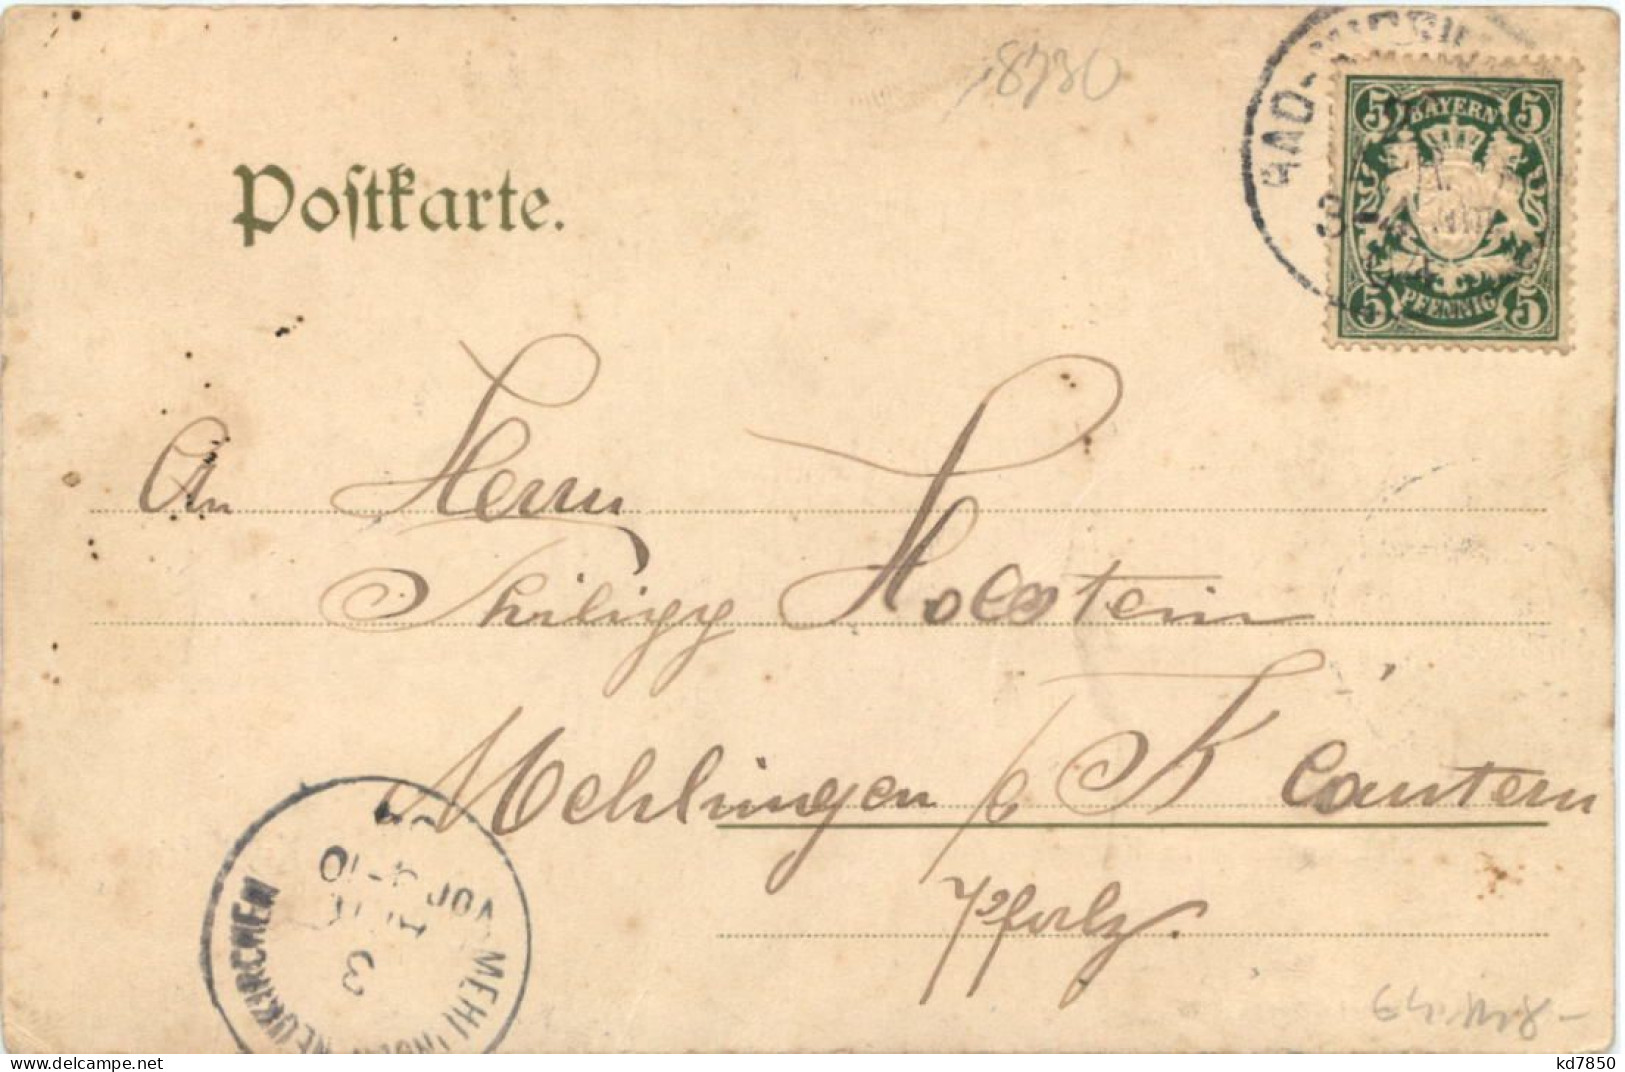 8730
BAD-
5 BAYERN 5
5 PFENNIG 5
Postkarte.
An Herrn
Philipp Holstein
Mehlingen b/ K'lautern
Pfalz.
MEHLINGEN-NEUKIRCHEN
VOR 9-10
3
kd7850